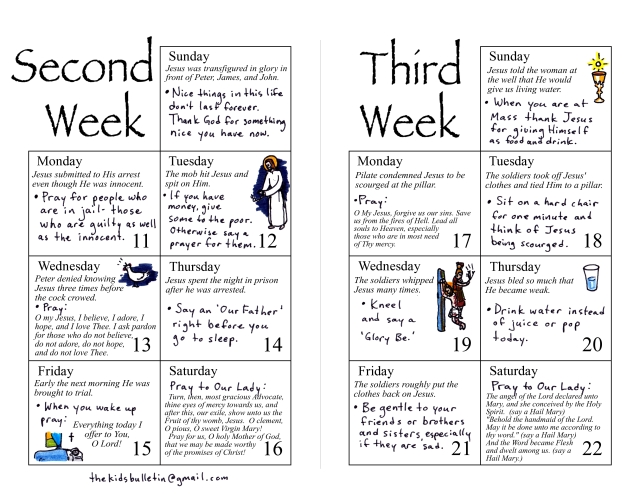 Second
Week
Sunday
Jesus was transfigured in glory in
front of Peter, James, and John.
• Nice things in this life
don't last forever.
Thank God for something
nice you have now.
Monday
Jesus submitted to His arrest
even though He was innocent.
• Pray for people who
are in jail - those
who are guilty as well
as the innocent. 11
Tuesday
The mob hit Jesus and
spit on Him.
• If you have
money, give
some to the poor.
Otherwise say a
prayer for them. 12
Wednesday
Peter denied knowing
Jesus three times before
the cock crowed.
• Pray:
O my Jesus, I believe, I adore, I
hope, and I love Thee. I ask pardon
for those who do not believe,
do not adore, do not hope,
and do not love Thee. 13
Thursday
Jesus spent the night in prison
after he was arrested.
• Say an 'Our Father'
right before you
go to sleep. 14
Friday
Early the next morning He was
brought to trial.
• When you wake up
pray: Everything today I
offer to You,
O Lord! 15
Saturday
Pray to Our Lady:
Turn, then, most gracious Advocate,
thine eyes of mercy towards us, and
after this, our exile, show unto us the
Fruit of thy womb, Jesus. O clement,
O pious, O sweet Virgin Mary!
Pray for us, O holy Mother of God,
that we may be made worthy
of the promises of Christ! 16
thekidsbulletin@gmail.com
Third
Week
Sunday
Jesus told the woman at
the well that He would
give us living water.
• When you are at
Mass thank Jesus
for giving Himself
as food and drink.
Monday
Pilate condemned Jesus to be
scourged at the pillar.
• Pray:
O My Jesus, forgive us our sins. Save
us from the fires of Hell. Lead all
souls to Heaven, especially
those who are in most need
of Thy mercy. 17
Tuesday
The soldiers took off Jesus'
clothes and tied Him to a pillar.
• Sit on a hard chair
for one minute and
think of Jesus
being scourged. 18
Wednesday
The soldiers whipped
Jesus many times.
• Kneel
and say a
'Glory Be.' 19
Thursday
Jesus bled so much that
He became weak.
• Drink water instead
of juice or pop
today. 20
Friday
The soldiers roughly put the
clothes back on Jesus.
• Be gentle to your
friends or brothers
and sisters, especially
if they are sad. 21
Saturday
Pray to Our Lady:
The angel of the Lord declared unto
Mary, and she conceived by the Holy
Spirit. (say a Hail Mary)
"Behold the handmaid of the Lord.
May it be done unto me according to
thy word." (say a Hail Mary)
And the Word became Flesh
and dwelt among us. (say a
Hail Mary.) 22